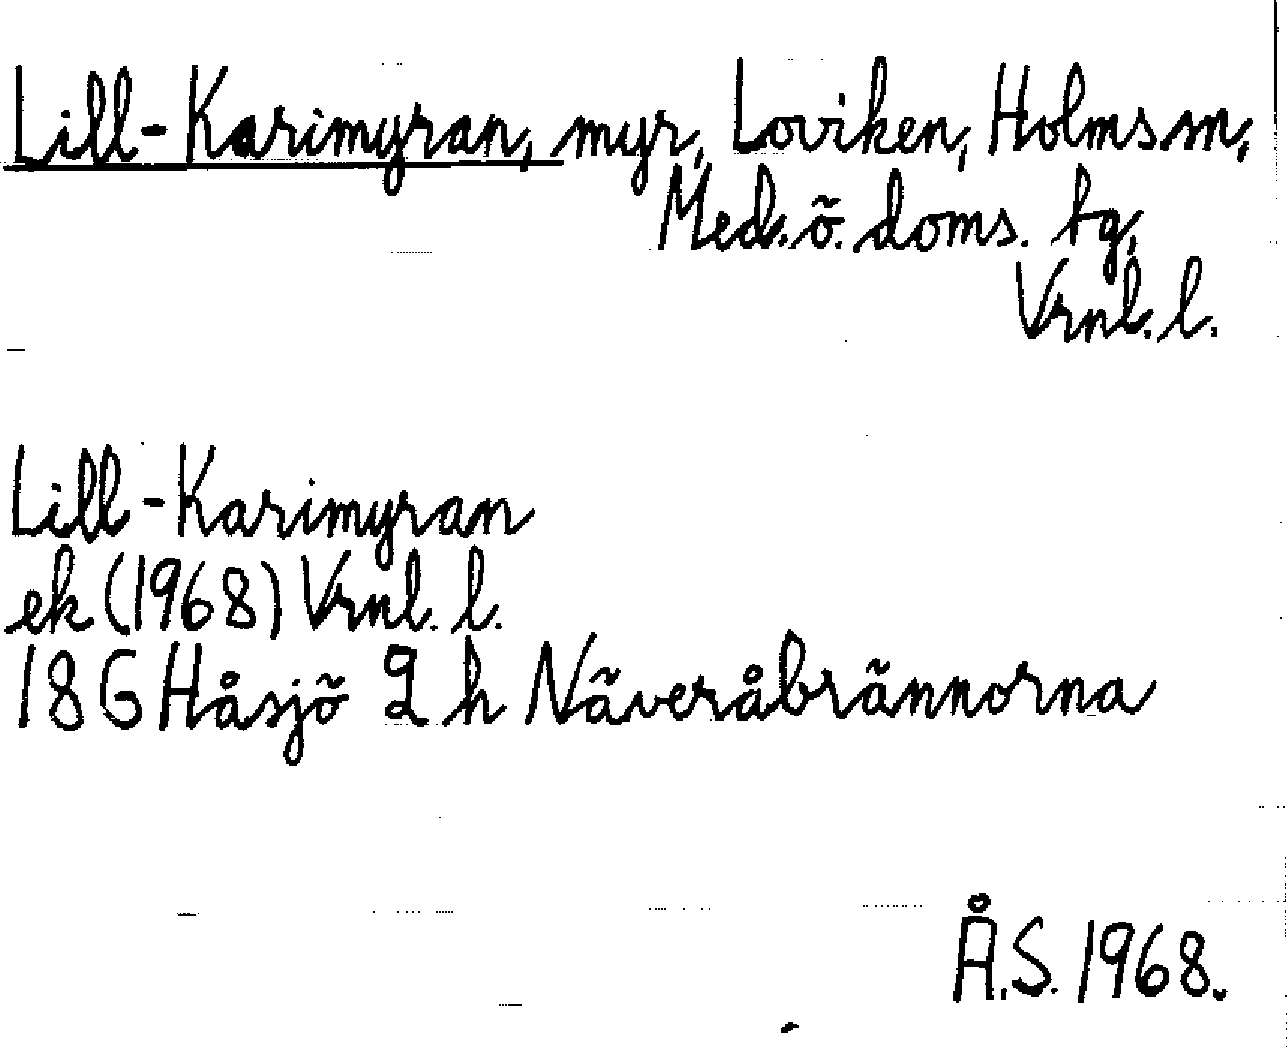 Lill-Karimyran, myr, Loviken, Holms sn,
Med. ö. doms. tg,
Vrnl. l.
Lill-Karimyran
ek (1968) Vrnl. l.
18G Håsjö 2 h Näveråbrännorna
Å.S. 1968.